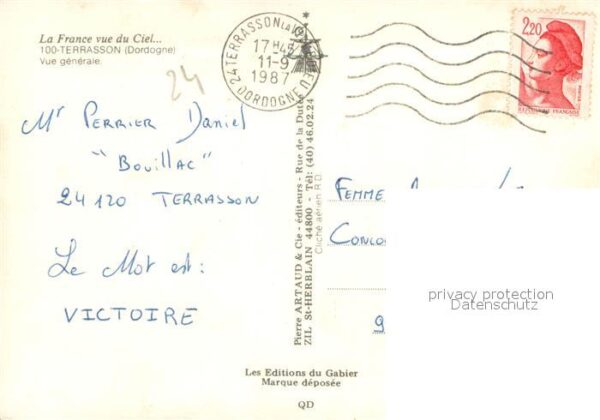 La France vue du Ciel...
100-TERRASSON (Dordogne)
Vue générale.
24
Mr PERRIER Daniel
"Bouillac"
24120 TERRASSON
Le Mot est:
VICTOIRE
24 TERRASSON LA
17H45
11-9
1987
DORDOGNE
Pierre ARTAUD & Cie - éditeurs - Rue de la Dutée
ZIL St-HERBLAIN 44800 - Tél: (40) 46.02.24
Cliché aérien R.D.
Les Editions du Gabier
Marque déposée
QD
2,20
FEMME
privacy protection
Datenschutz
9